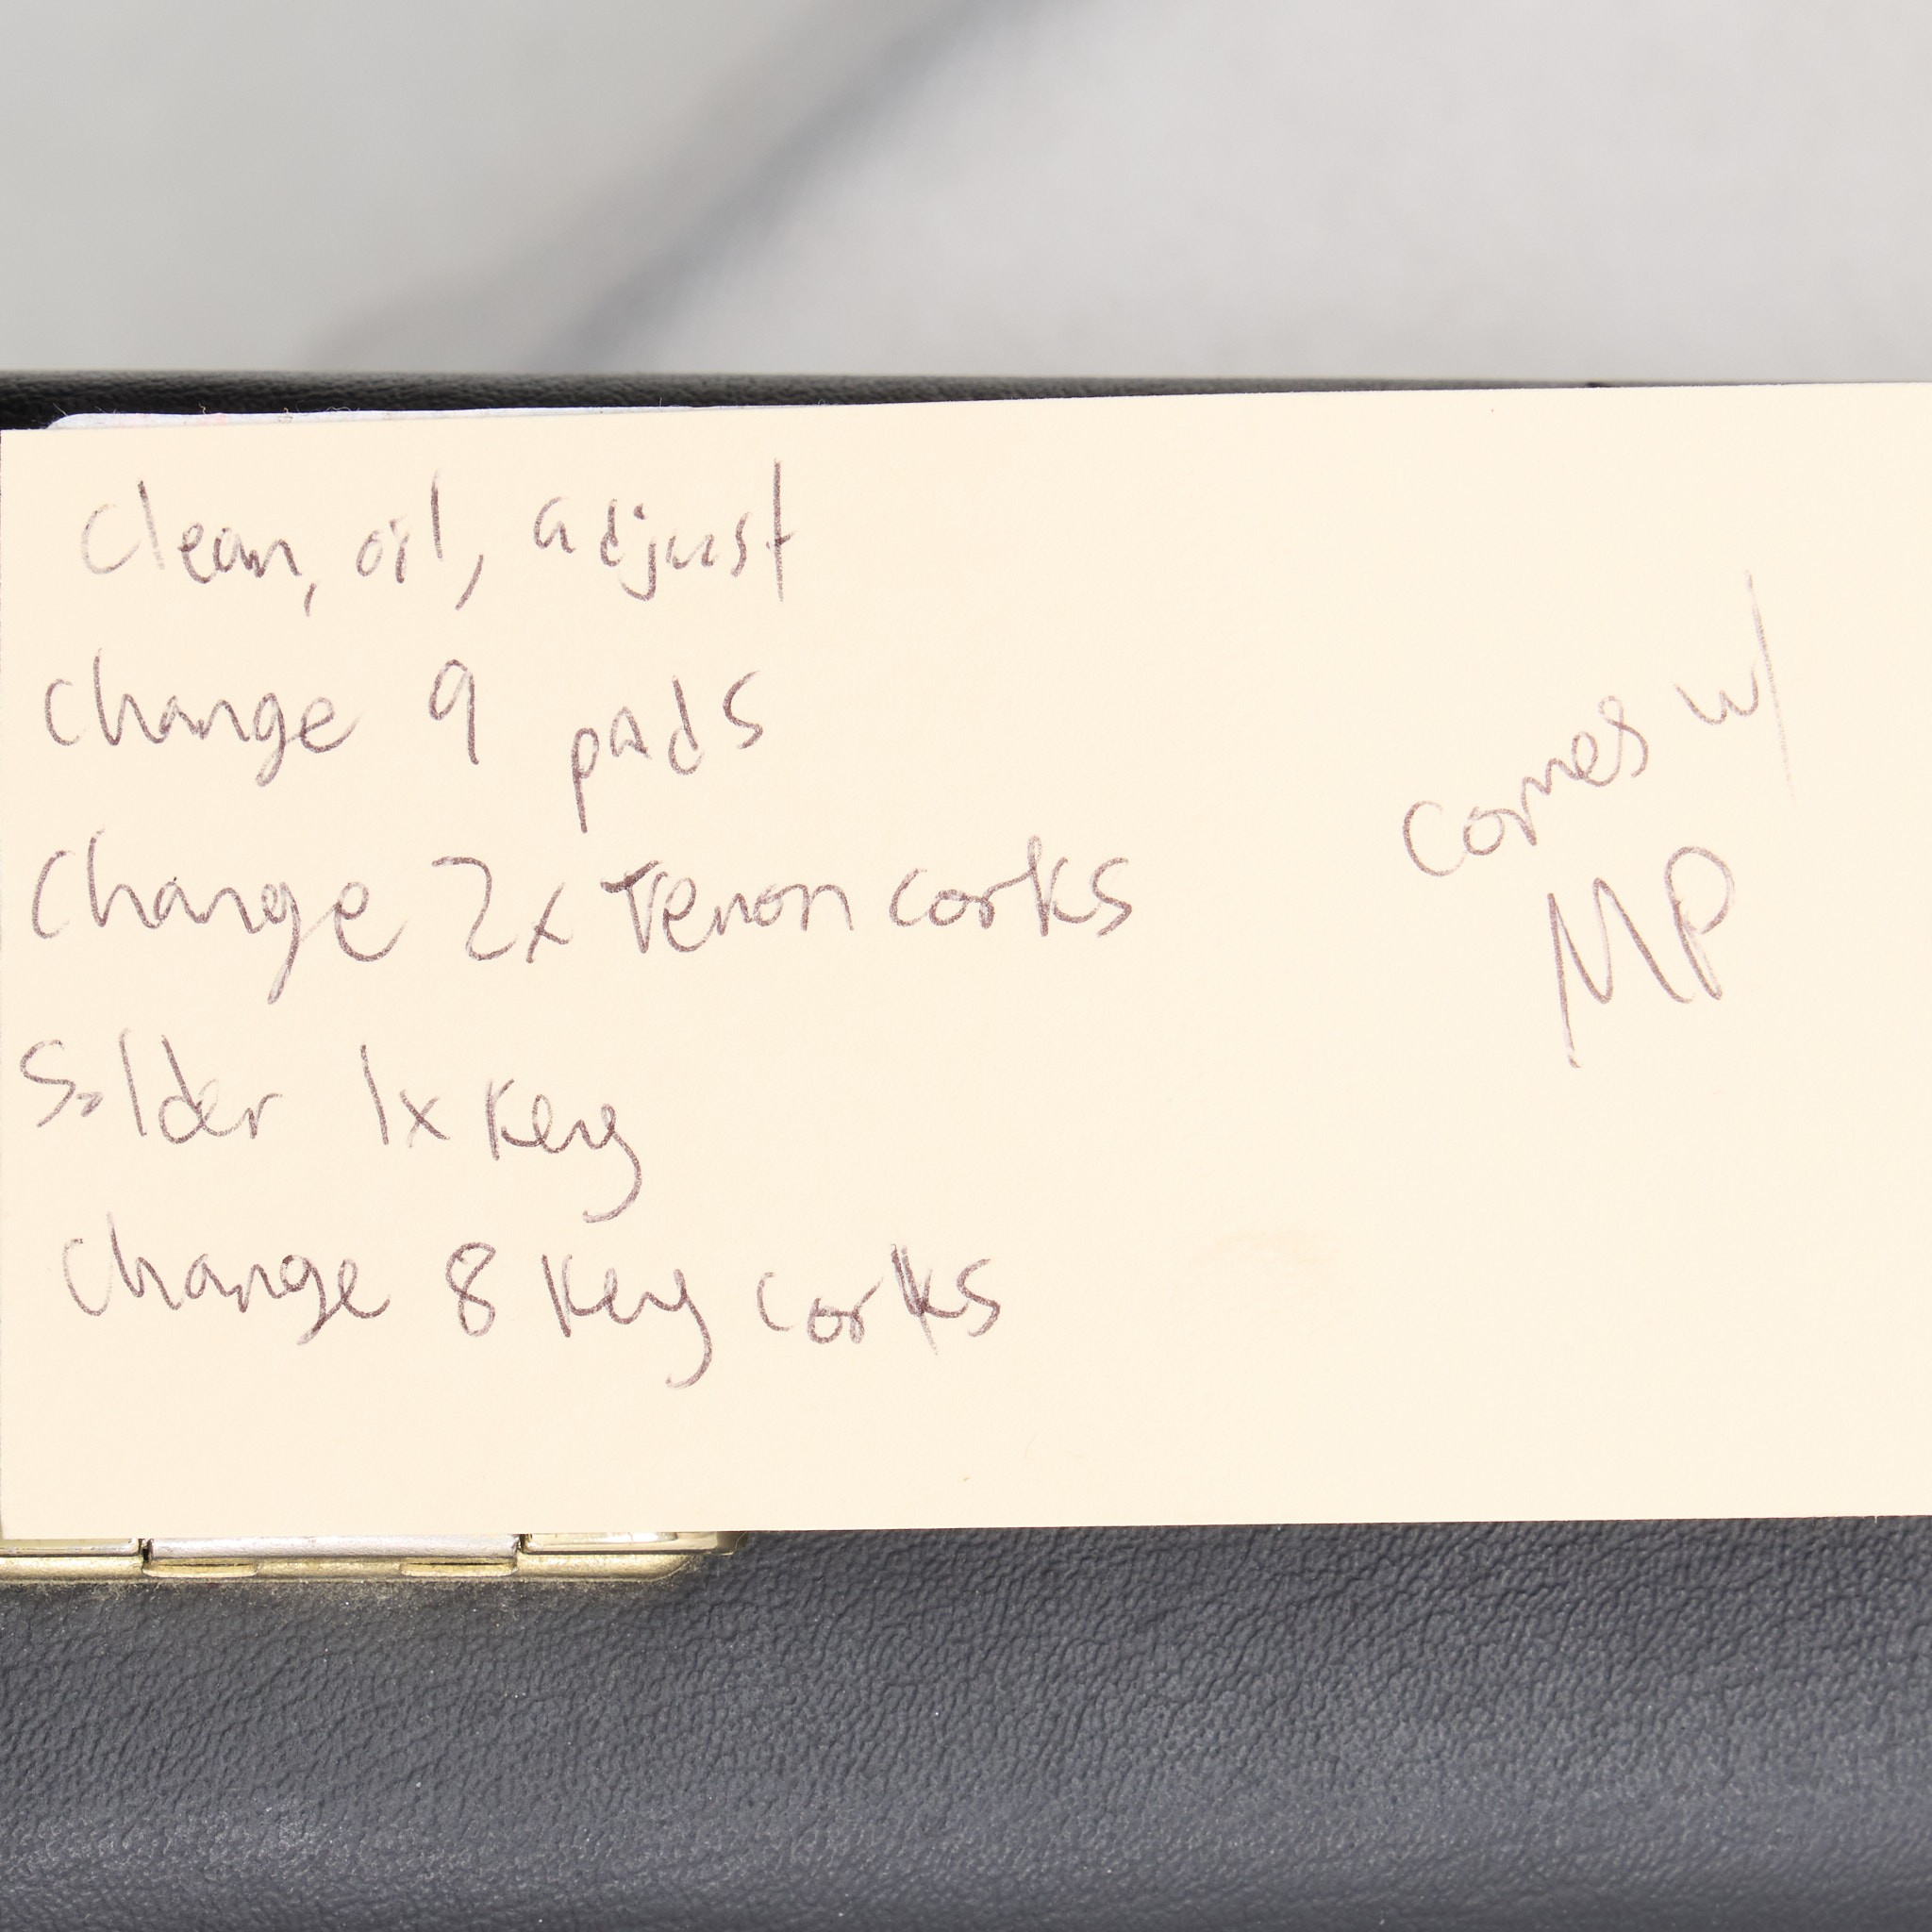 Clean, oil, adjust
Change 9 pads
Change 2x Tenon corks
Solder 1x key
Change 8 key corks
comes w/
MP